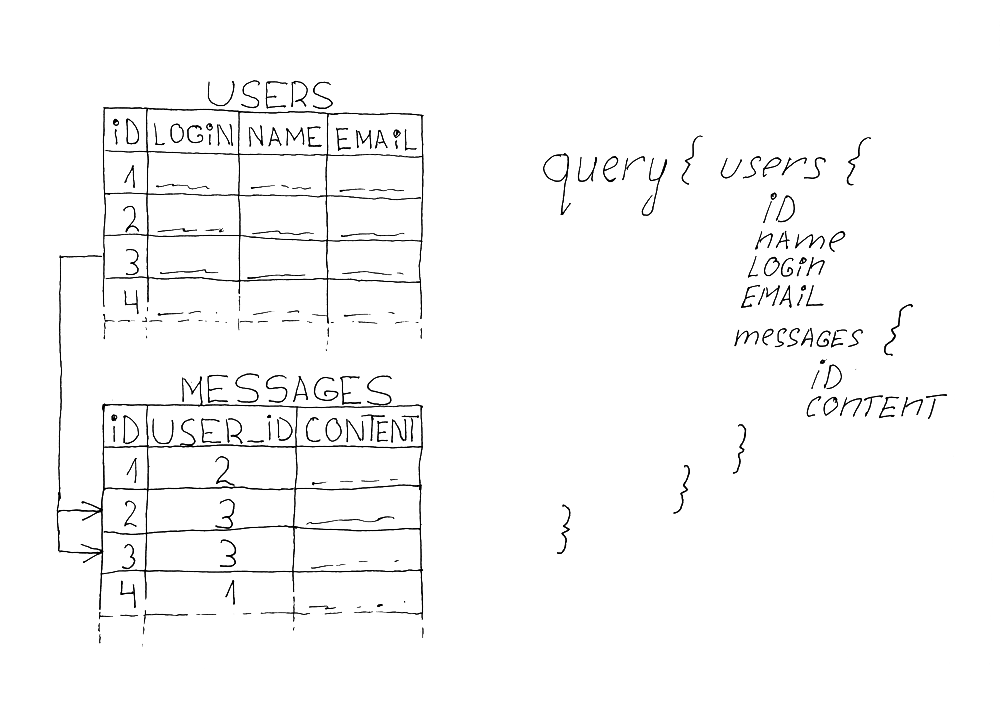 USERS
iD LOGiN NAME EMAiL
1
2
3
4
MESSAGES
iD USER_iD CONTENT
1 2
2 3
3 3
4 1
query { users {
iD
nAme
LOGin
EMAiL
messAGES {
iD
CONTENT
}
}
}